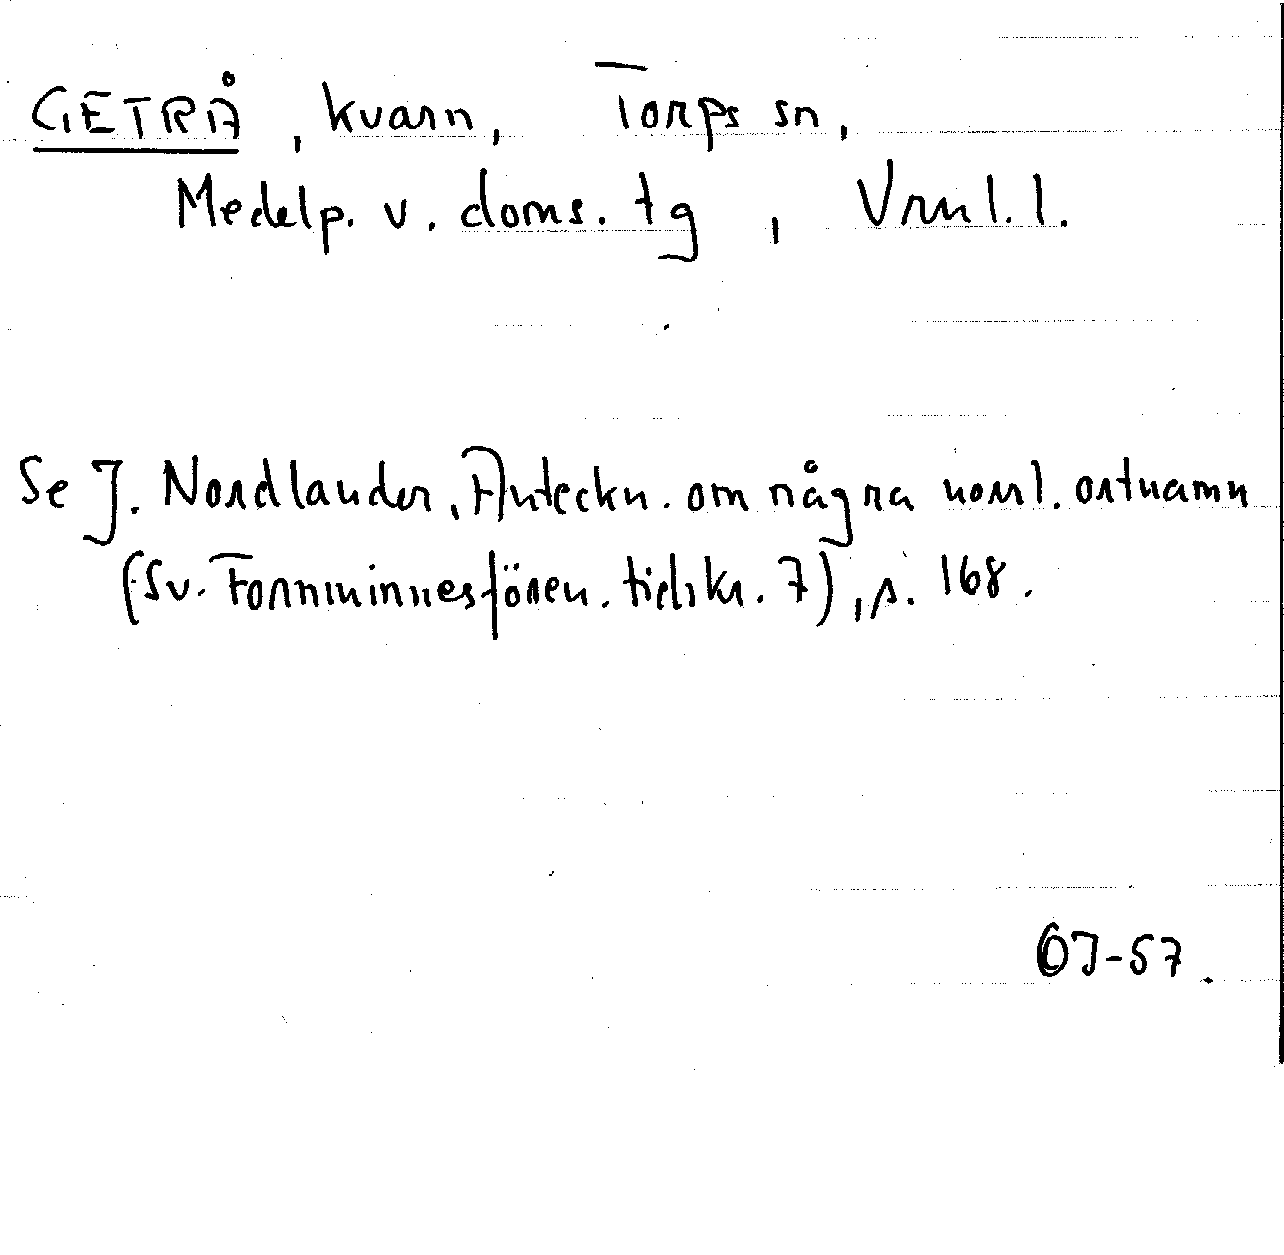 GETRÅ, kvarn, Torps sn,
Medelp. v. doms. tg, Vrnl. l.
Se J. Nordlander, Anteckn. om några norrl. ortnamn
(Sv. Fornminnesfören. tidskr. 7), s. 168.
OJ-57.